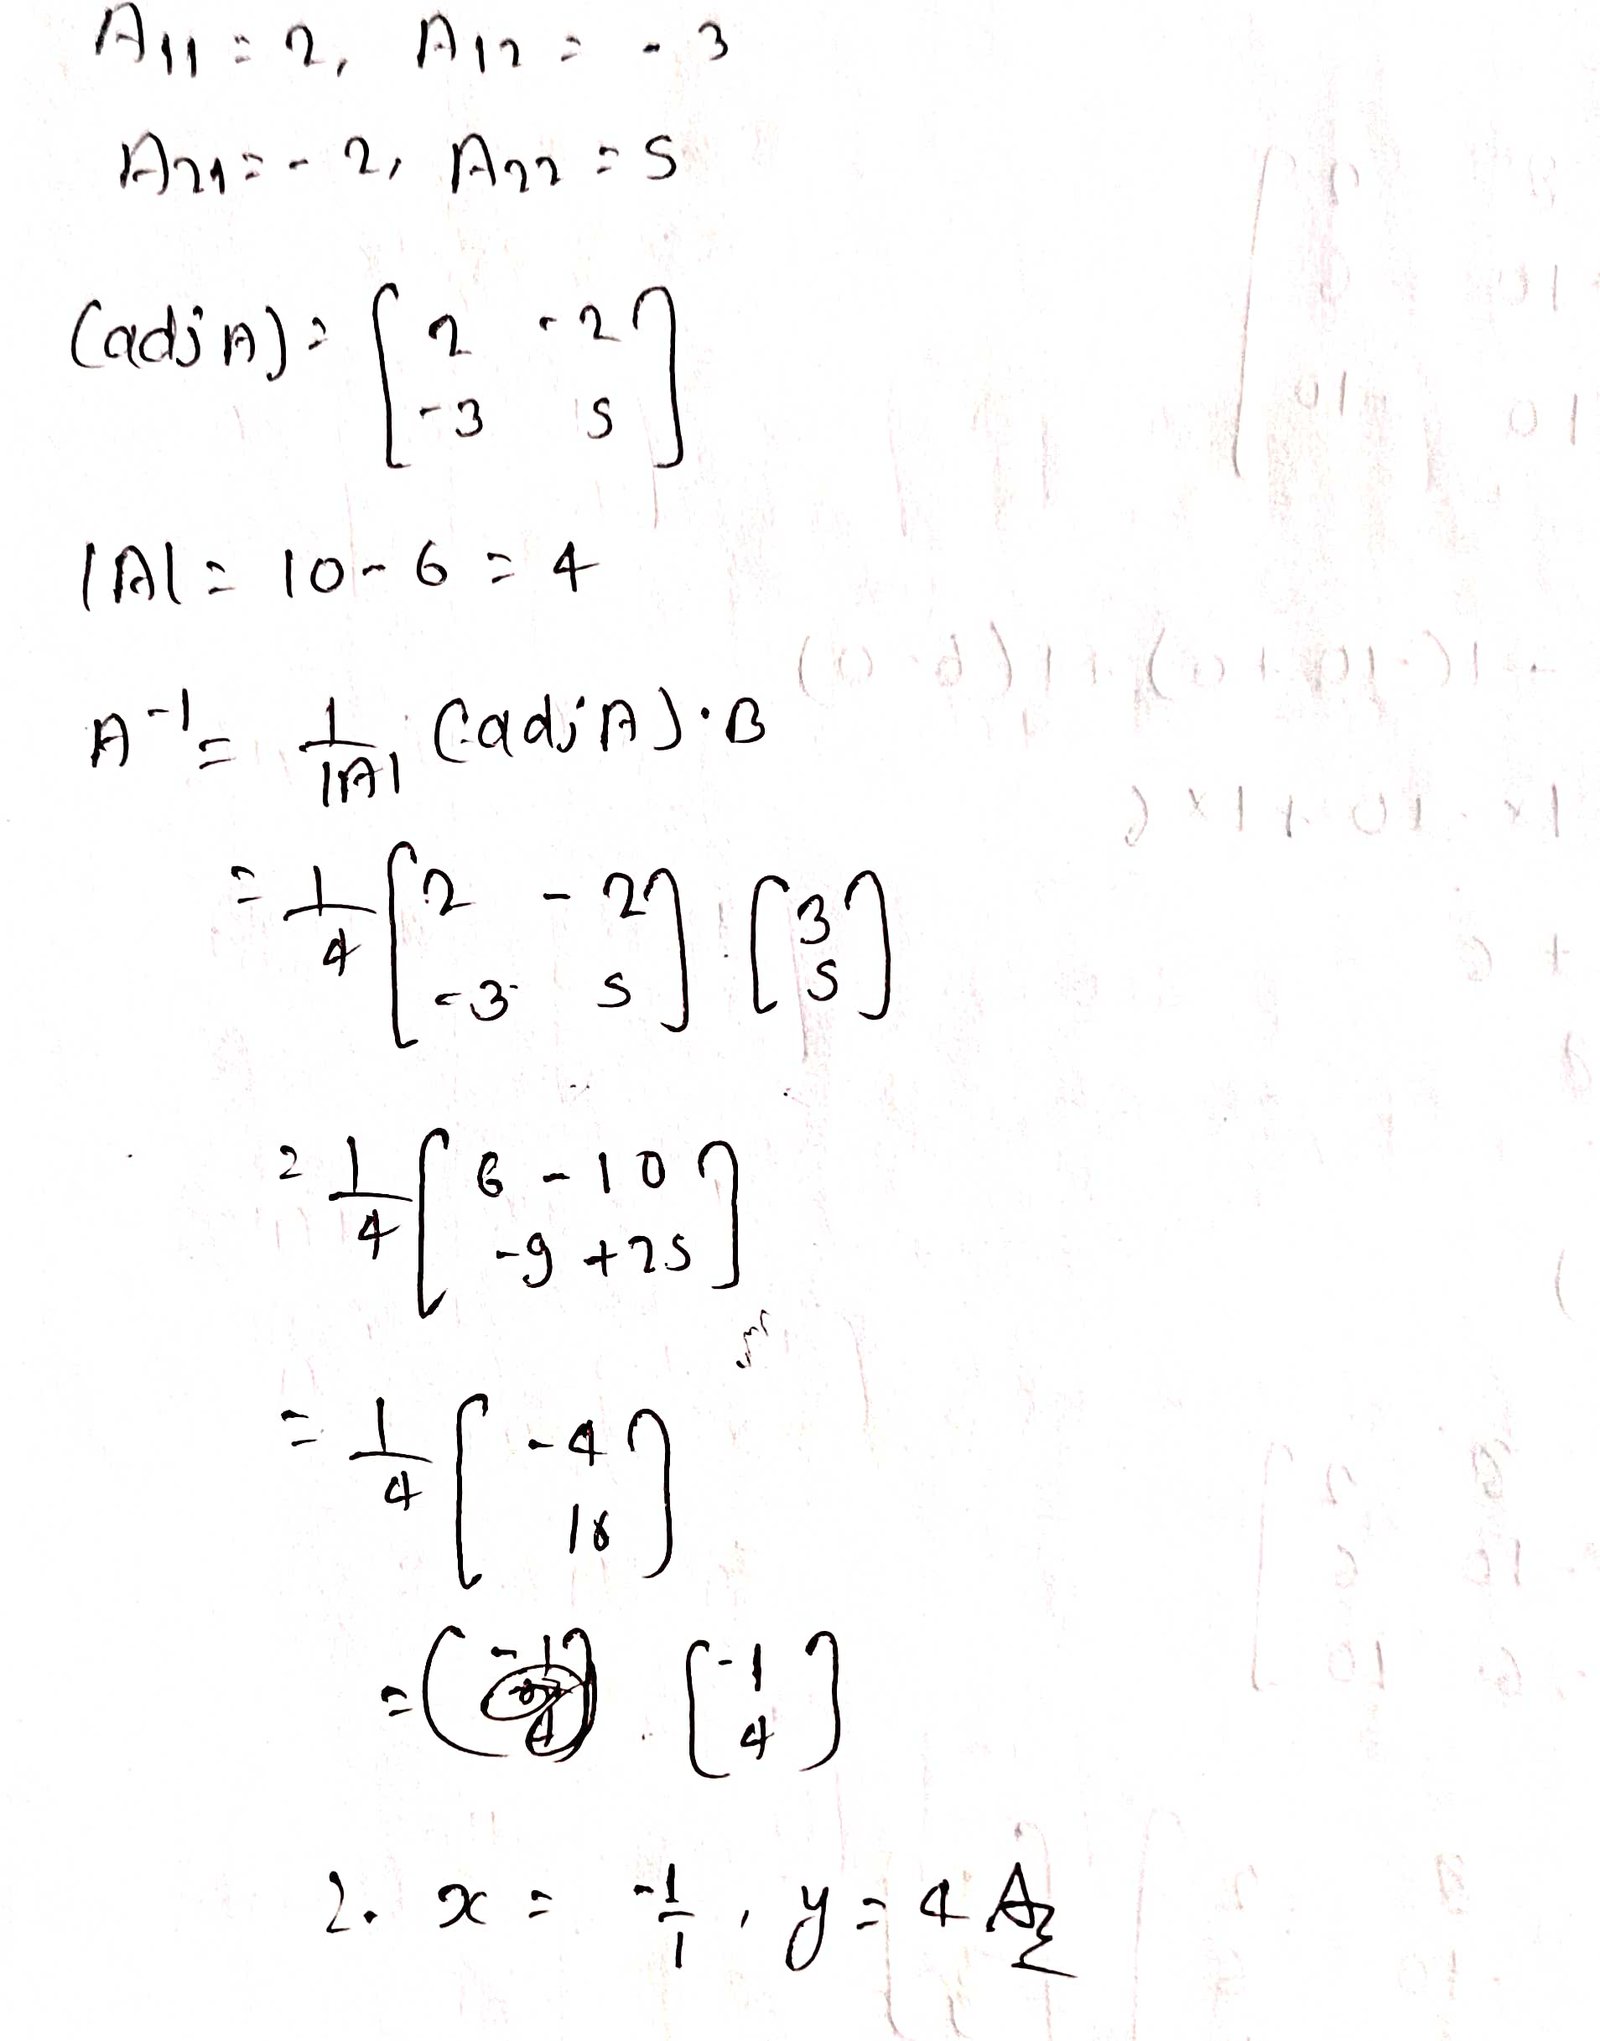 A11 = 2, A12 = -3
A21 = -2, A22 = 5
(adj A) = [2 -2
-3 5]
|A| = 10 - 6 = 4
A^-1 = 1/|A| (adj A) · B
= 1/4 [2 -2
-3 5] [3
5]
= 1/4 [6 - 10
-9 + 25]
= 1/4 [-4
16]
= [-1
4]
x = -1/1, y = 4 A